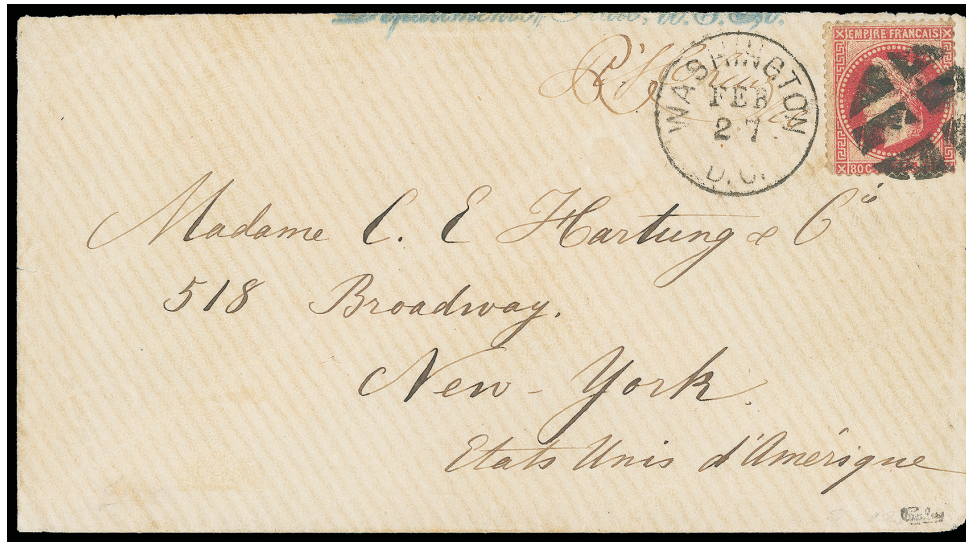 Department of State, U.S.A.
WASHINGTON
FEB
27
D.C.
EMPIRE FRANCAIS
80C
Madame C. E Hartung & Cie
518 Broadway.
New-York.
Etats Unis d'Amérique